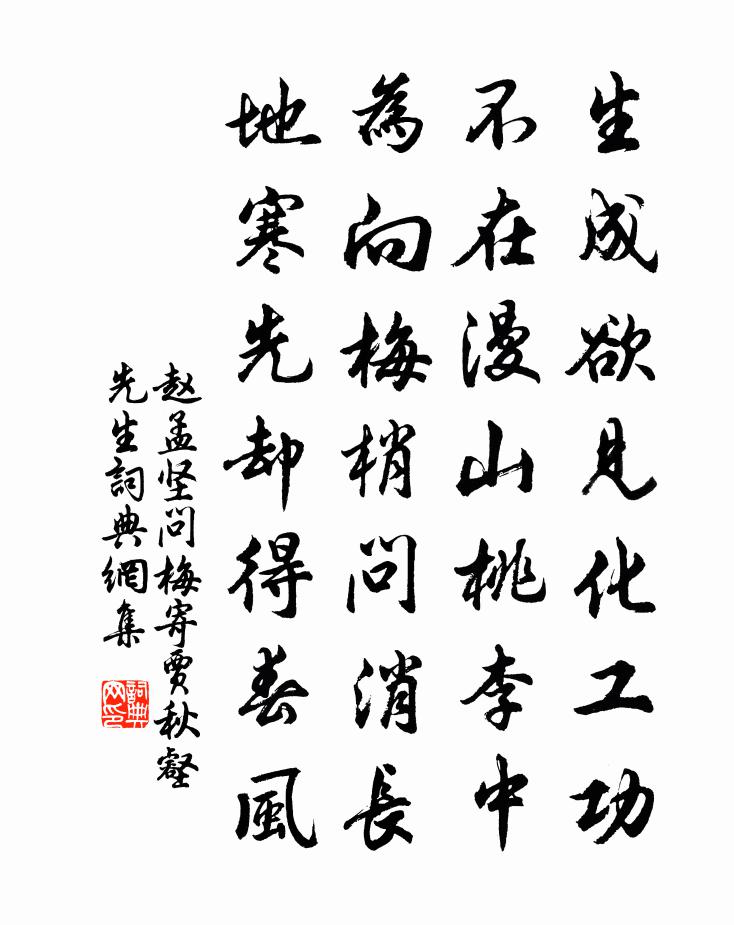 生成欲見化工功
不在漫山桃李中
為向梅梢問消長
地寒先却得春風
赵孟坚问梅寄贾秋壑
先生詞典網集
詞典
网印